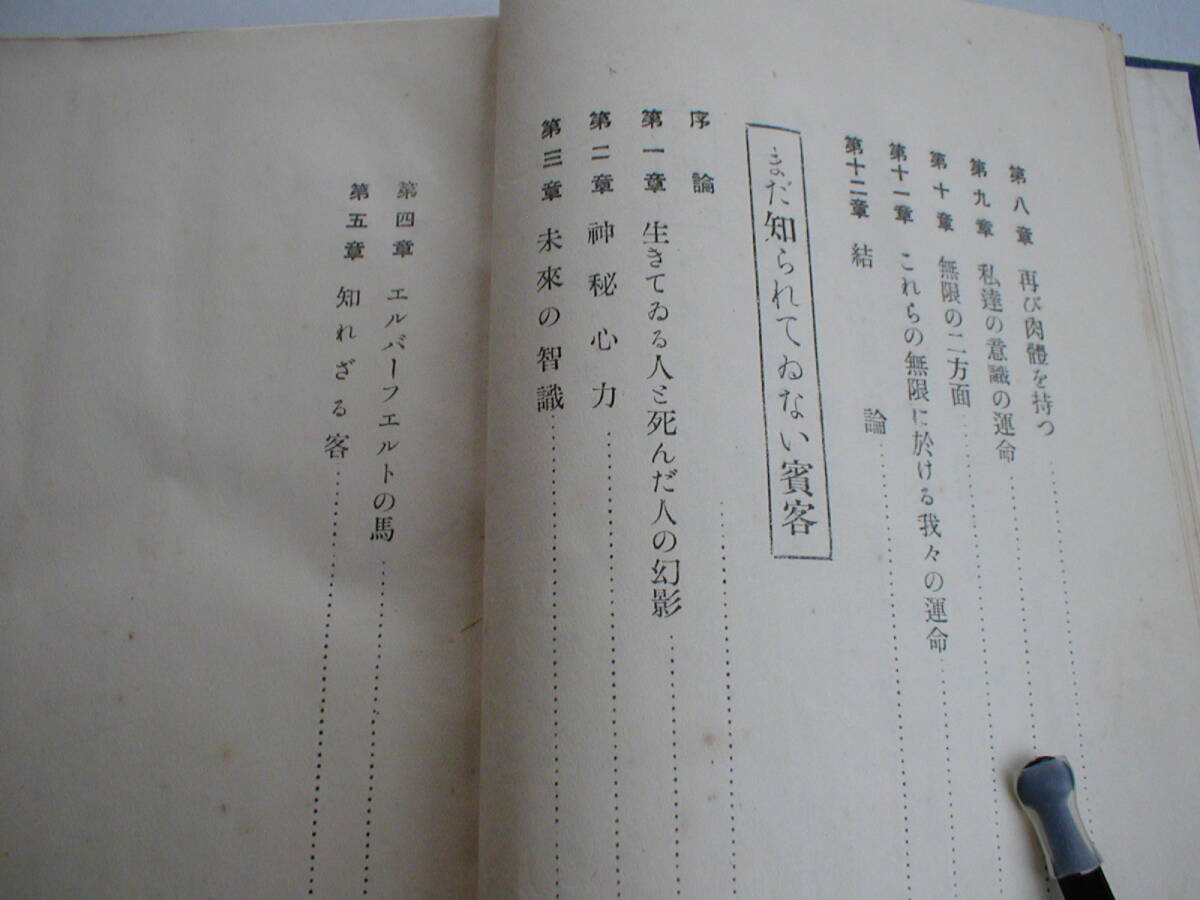 第八章 再び肉體を持つ
第九章 私達の意識の運命
第十章 無限の二方面
第十一章 これらの無限に於ける我々の運命
第十二章 結論
まだ知られてゐない賓客
序論
第一章 生きてゐる人と死んだ人の幻影
第二章 神秘心力
第三章 未來の智識
第四章 エルバーフエルトの馬
第五章 知れざる客